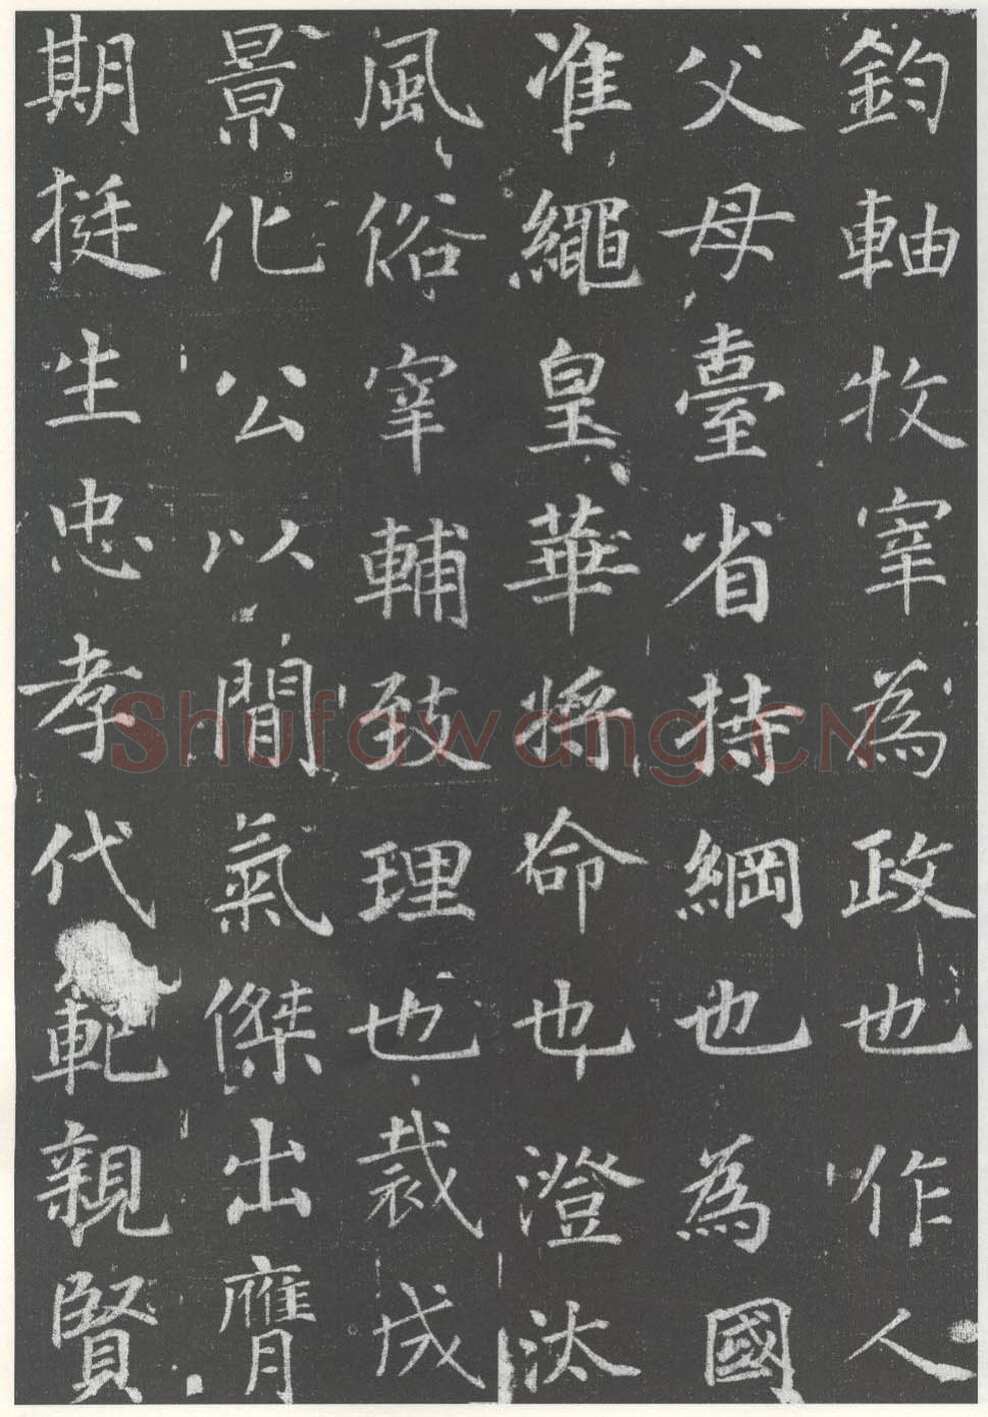 鈞軸牧宰為政也作人
父母臺省持綱也為國
准繩皇華將命也澄汰
風俗宰輔致理也裁成
景化公以間氣傑出膺
期挺生忠孝代範親賢
Shufawang.CN